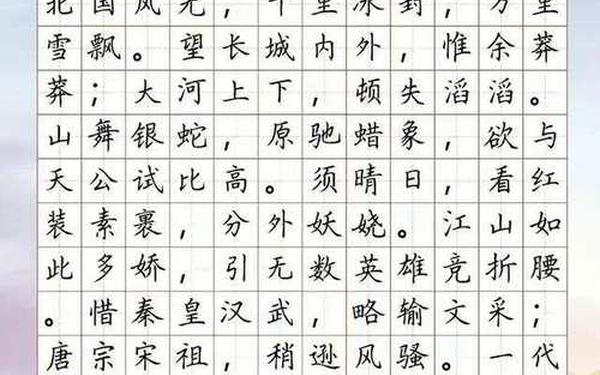 北国风光，千里冰封，万里
雪飘。望长城内外，惟余莽
莽；大河上下，顿失滔滔。
山舞银蛇，原驰蜡象，欲与
天公试比高。须晴日，看红
装素裹，分外妖娆。江山如
此多娇，引无数英雄竞折腰
。惜秦皇汉武，略输文采；
唐宗宋祖，稍逊风骚。一代